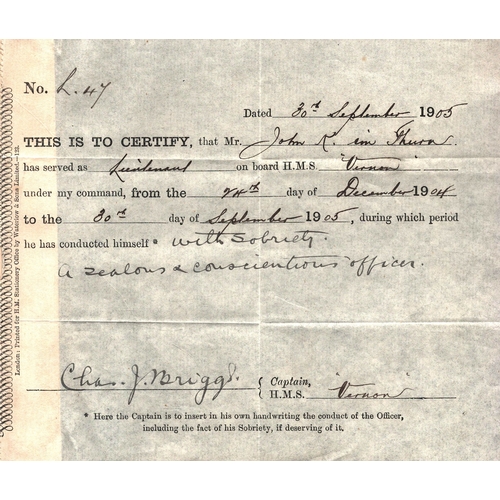 No. L. 47
Dated 30th September 1905
THIS IS TO CERTIFY, that Mr. John K. im Thurn.
has served as Lieutenant on board H.M.S. "Vernon"
under my command, from the 24th day of December 1904
to the 30th day of September 1905, during which period
he has conducted himself* with sobriety.
A zealous & conscientious officer.
Chas. J. Briggs. { Captain,
H.M.S. "Vernon"
* Here the Captain is to insert in his own handwriting the conduct of the Officer,
including the fact of his Sobriety, if deserving of it.
London: Printed for H.M. Stationery Office by Waterlow & Sons Limited.